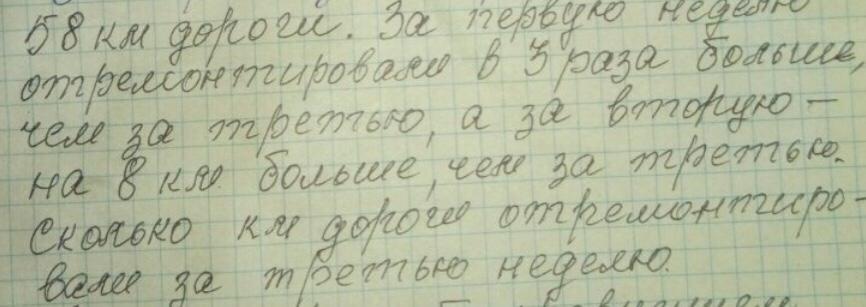 58 км дороги. За первую неделю
отремонтировали в 3 раза больше,
чем за третью, а за вторую –
на 8 км больше, чем за третью.
Сколько км дороги отремонтиро-
вали за третью неделю.